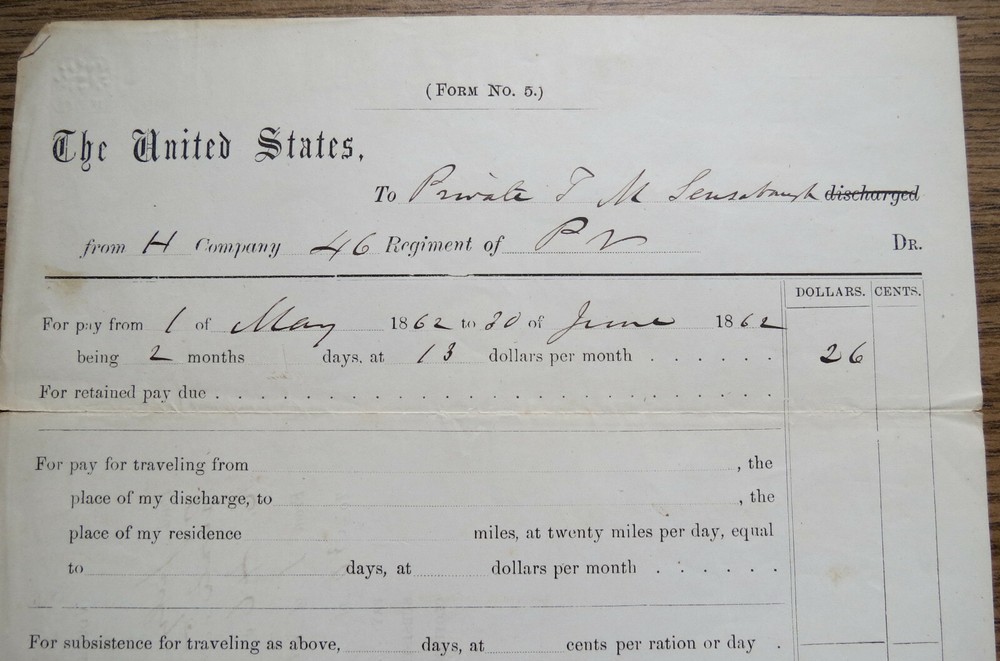 (Form No. 5.)
The United States,
To Private T M Sensabaugh discharged
from H Company 46 Regiment of P V Dr.
DOLLARS. CENTS.
For pay from 1 of May 1862 to 30 of June 1862
being 2 months days, at 13 dollars per month . . . . . . 26
For retained pay due . . . . . . . . . . . . . . . . . . . . . . . .
For pay for traveling from , the
place of my discharge, to , the
place of my residence miles, at twenty miles per day, equal
to days, at dollars per month . . . . . .
For subsistence for traveling as above, days, at cents per ration or day .